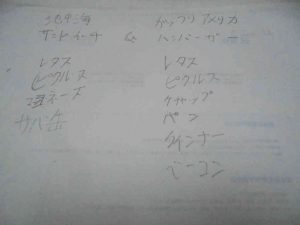 地中海
サンドイッチ
&
ガッツリアメリカ
ハンバーガー
レタス
ピクルス
マヨネーズ
サバ缶
レタス
ピクルス
ケチャップ
パン
ウインナー
ベーコン